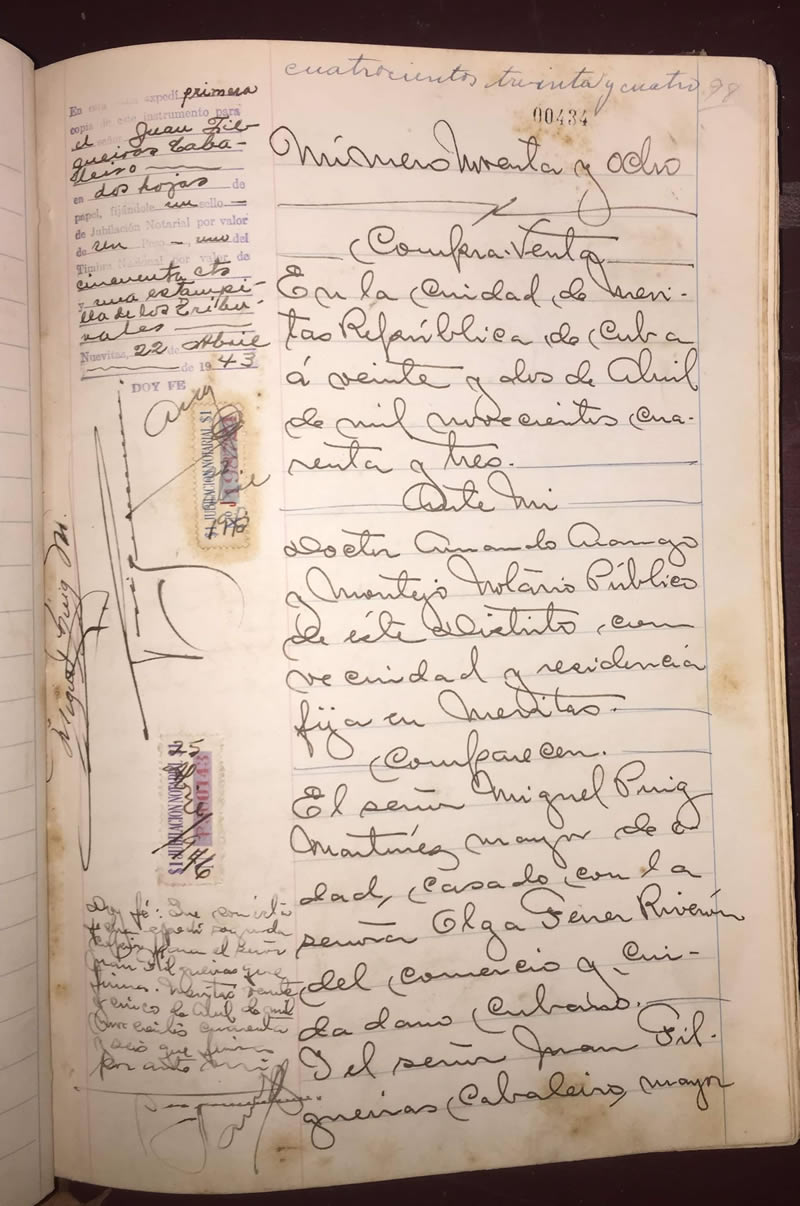 cuatrocientos treinta y cuatro 98
00434
Número Noventa y Ocho
Compra-Venta
En la Ciudad de Nuevi-
tas República de Cuba
á veinte y dos de Abril
de mil novecientos cua-
renta y tres.
Ante Mi
Doctor Armando Arango
y Montejo Notário Público
de éste Distrito, con
vecindad y residencia
fija en Nuevitas.
Comparecen.
El señor Miguel Puig
Martínez mayor de e
dad, casado con la
señora Olga Ferrer Riverón
del comercio y ciu-
dadano cubano.
Y el señor Juan Fil-
gueiras Cabaleiro, mayor
En esta expedí primera
copia de este instrumento para
el Juan Fil-
gueiras Caba-
leiro
en dos hojas de
papel, fijándole un sello
de Jubilación Notarial por valor
de un Peso - uno del
Timbre Nacional por valor de
cincuenta cts
y una estampi-
lla de los Tribu-
nales
Nuevitas, 22 de Abril
de 1943
DOY FE
$1 JUBILACION NOTARIAL $1
Miguel Puig M.
$1 JUBILACION NOTARIAL $1
Doy fé: Que con esta
fecha expedí segunda
copia para el señor
Juan Filgueiras que
firma. Nuevitas veinte
y cinco de Abril de mil
novecientos cuarenta
y seis que firma
por ante mi